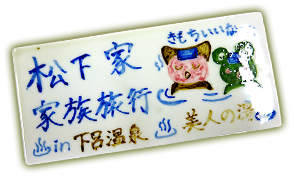 松下家
きもちいいな
家族旅行
in 下呂温泉
美人の湯